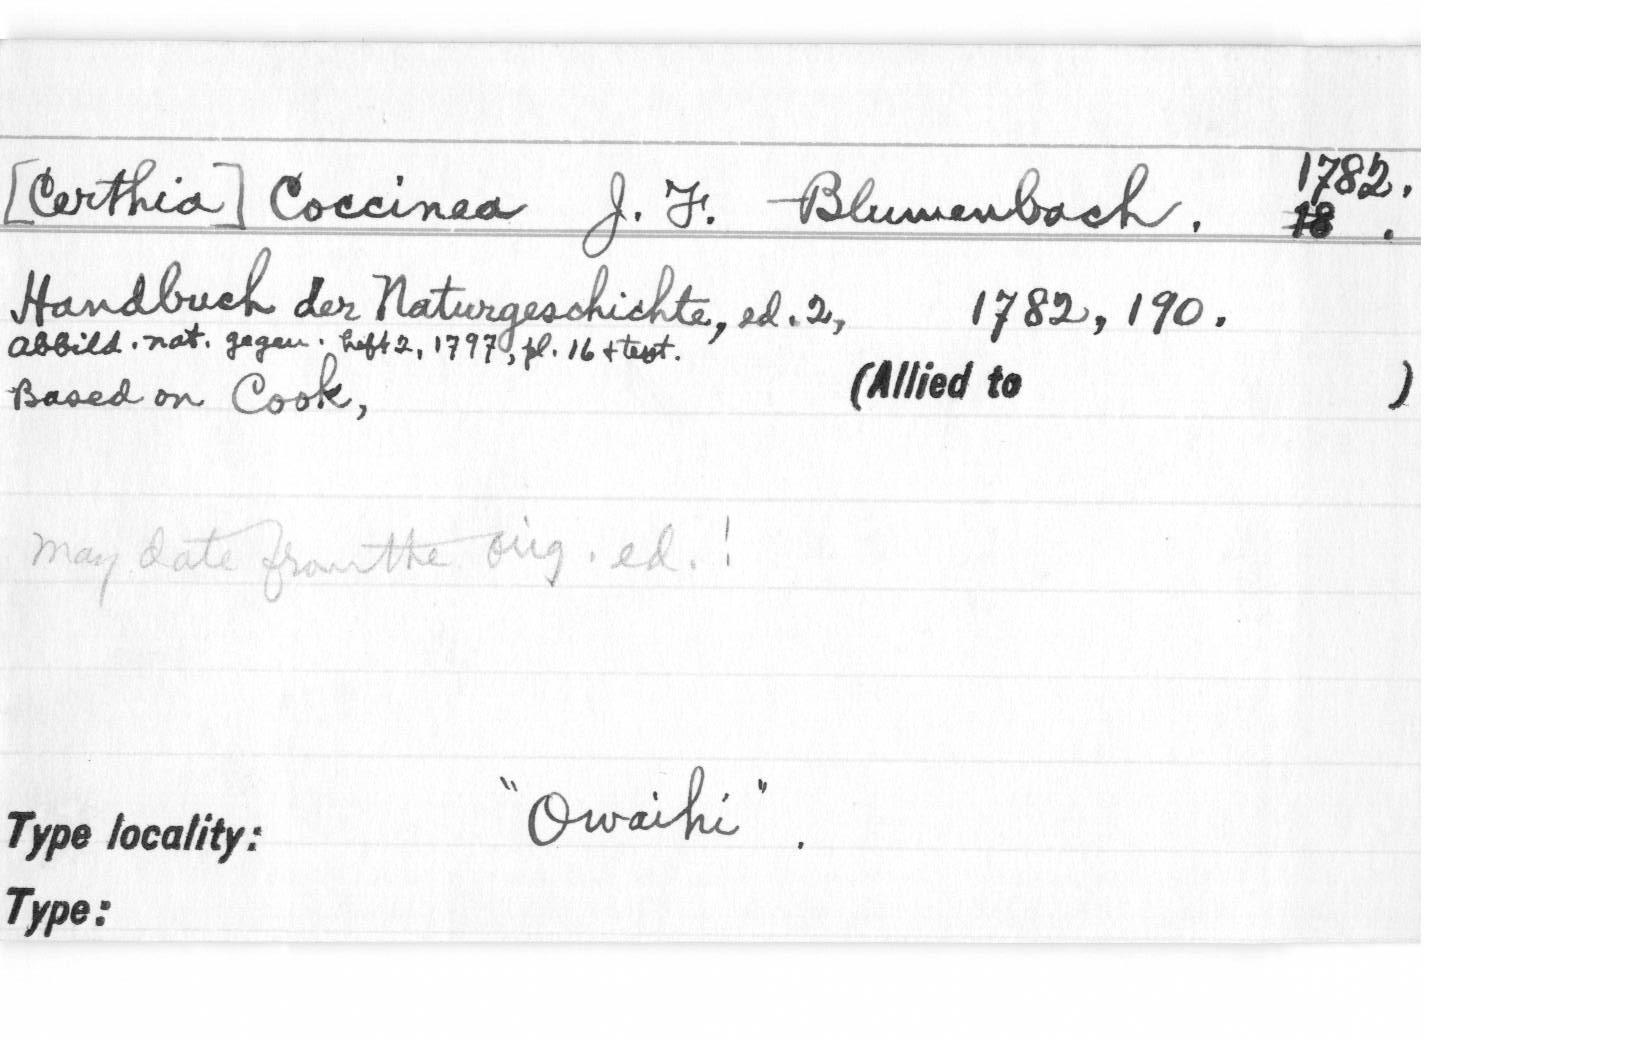 [Certhia] Coccinea J. F. Blumenbach. 1782.
18 .
Handbuch der Naturgeschichte, ed. 2, 1782, 190.
Abbild. nat. gegen. heft 2, 1797, pl. 16 + text.
Based on Cook, (Allied to )
May date from the orig. ed. !
Type locality: "Owaihi".
Type: